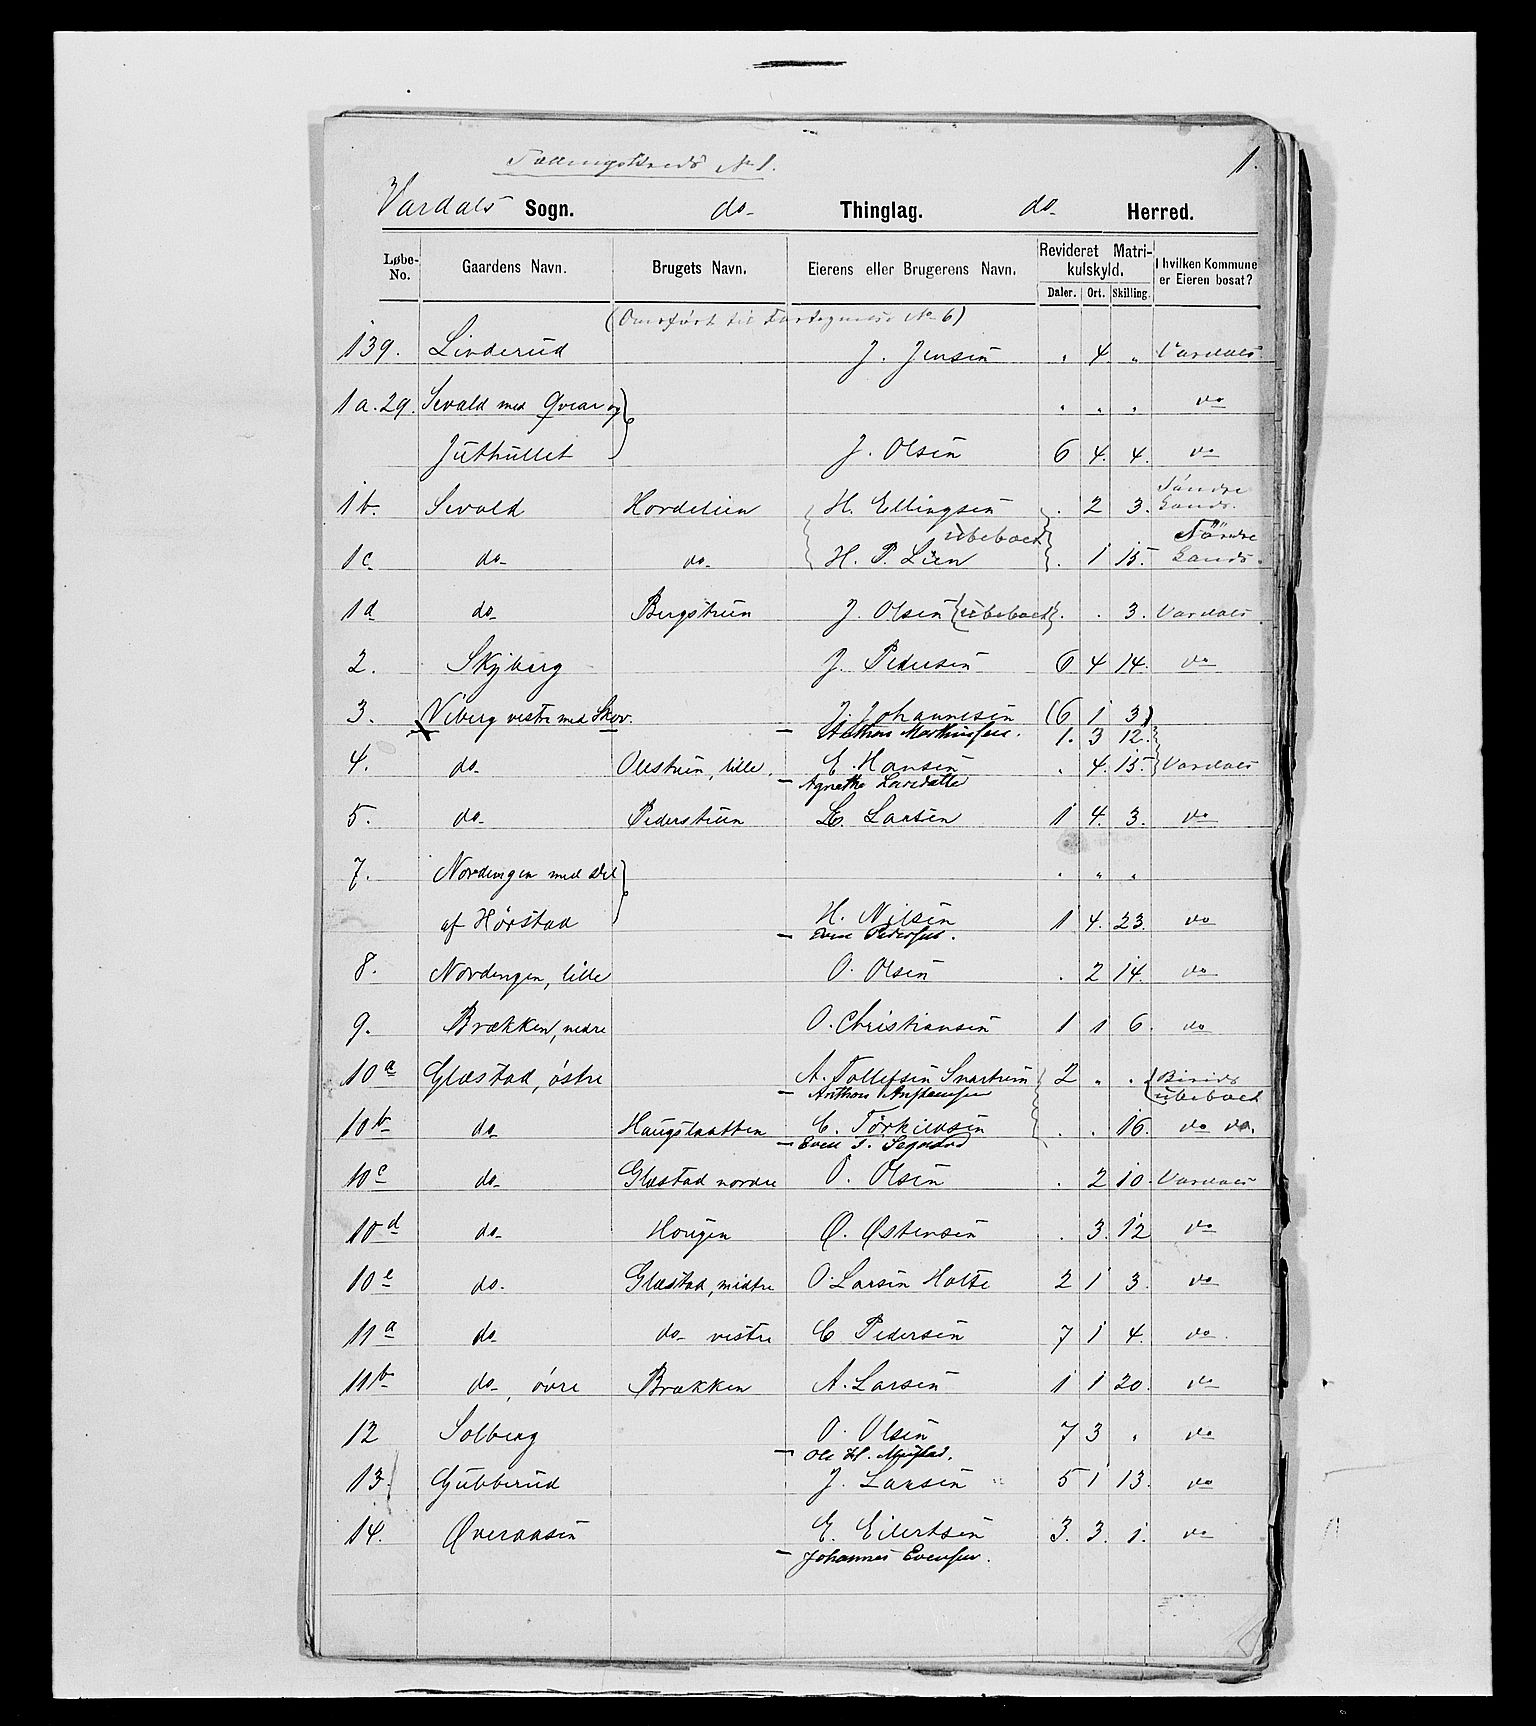 Tællingskreds No 1.
1.
Vardals Sogn. do Thinglag. do Herred.
Løbe-No. Gaardens Navn. Brugets Navn. Eierens eller Brugerens Navn. Revideret Matrikulskyld. I hvilken Kommune er Eieren bosat?
Daler. Ort. Skilling.
(Overført til Fortegnelse No 6)
139. Linderud J. Jensen . 4 " Vardals
1a.29. Sevald med Qvear og . . . do
Juthullet J. Olsen 6 4. 4. do
1b. Sevald Hordelien H. Ellingsen . 2 3. Søndre Lands.
ubeboet
1c do do H. P. Lien . 1 15. Søndre Lands.
1d do Bergstuen J. Olsen {ubeboet} . . 3. Vardals
2. Skyberg J. Pedersen 6 4 14. do
3. Viberg vestre med Skov. J. Johannesen (6 1 3)
— Anthon Marthinsen. 1. 3 12.
4. do Olestuen, lille. E. Hansen . 4. 15. Vardals
— Agnethe Larsdatter
5. do Pederstuen L. Larsen 1 4. 3. do
7. Nordengen med Del . " "
af Hørstad H. Nilsen 1 4. 23. do
— Even Pedersen.
8. Nordengen, lille O. Olsen . 2 14. do
9. Brækken, nedre O. Christiansen 1 1 6. do
10a Glæstad, østre A. Tollefsen Svartuen 2 " . Birids
— Anthon ubeboet
10b do Haugsnatten C. Torkildsen . . 16. do do.
— Even
10c do Glæstad nordre O. Olsen . 2 10. Vardals
10d do Haugen Ø. Østensen . 3. 12 do
10e do. Glæstad, midtre O. Larsen Holte 2 1 3. do
11a do do vestre C. Pedersen 7 1 4. do.
11b do, øvre Brækken A. Larsen 1 1 20. do
12 Solberg O. Olsen 7 3 . do
— Ole H. Mustad.
13. Gubberud J. Larsen 5 1 13. do
14. Øveraasen E. Eilertsen 3. 3. 1. do
— Johannes Evensen.